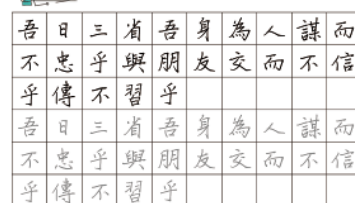 吾日三省吾身為人謀而
不忠乎與朋友交而不信
乎傳不習乎
吾日三省吾身為人謀而
不忠乎與朋友交而不信
乎傳不習乎